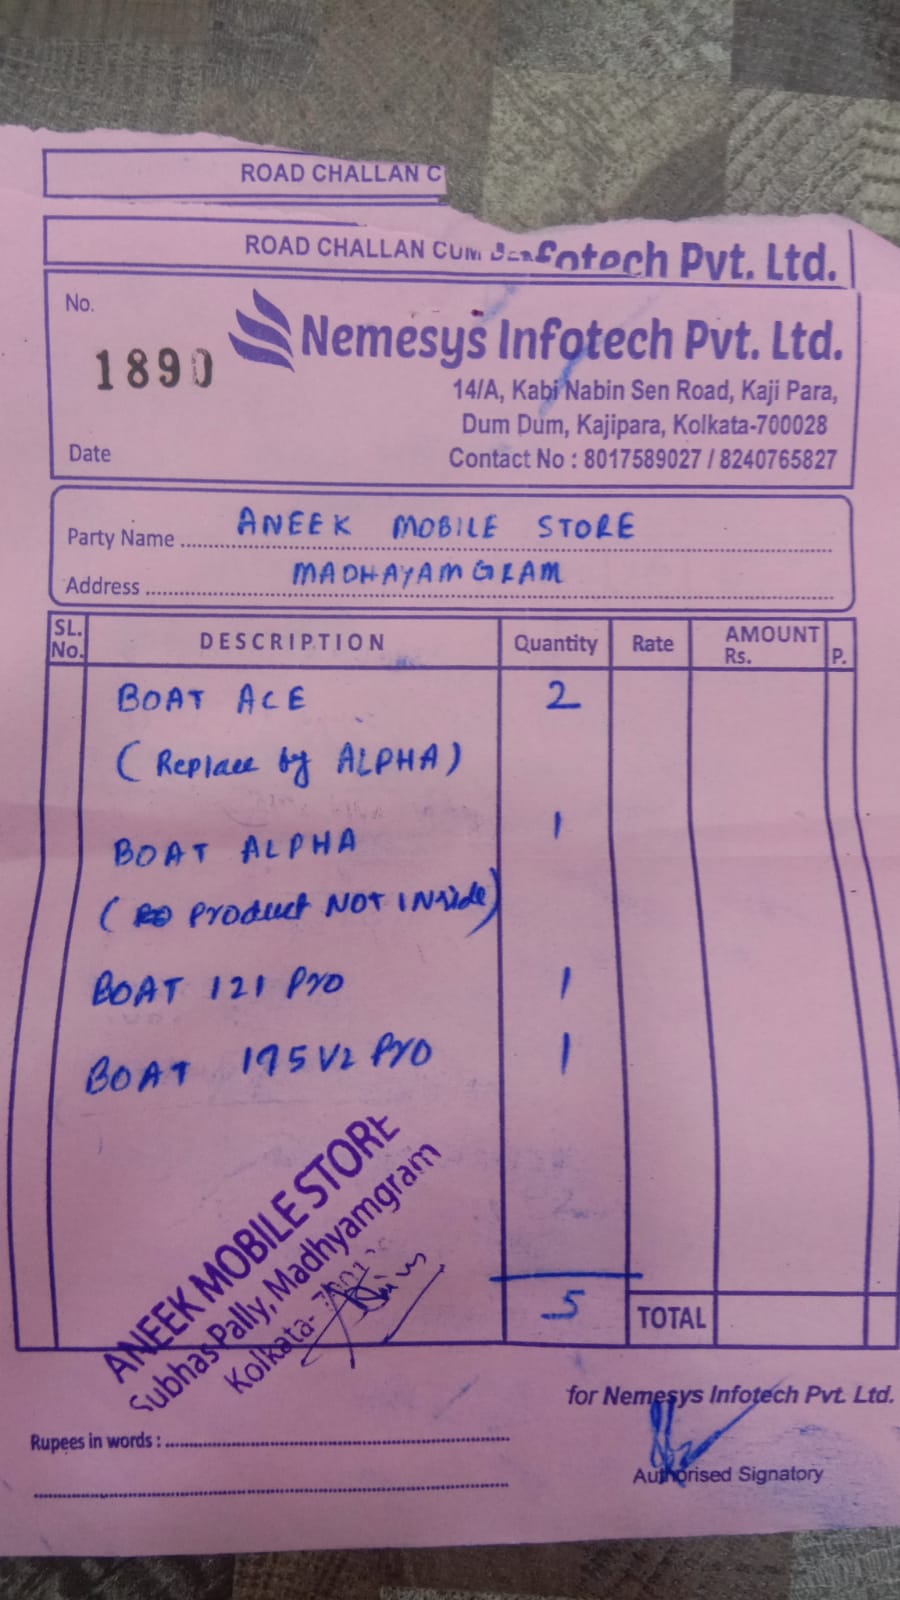 ROAD CHALLAN C
ROAD CHALLAN CUM
Infotech Pvt. Ltd.
No.
1890
Nemesys Infotech Pvt. Ltd.
14/A, Kabi Nabin Sen Road, Kaji Para,
Dum Dum, Kajipara, Kolkata-700028
Date
Contact No : 8017589027 / 8240765827
Party Name ANEEK MOBILE STORE
Address MADHAYAMGRAM
SL. No. DESCRIPTION Quantity Rate AMOUNT Rs. P.
BOAT ACE 2
(Replace by ALPHA)
BOAT ALPHA 1
(Product NOT INside)
BOAT 121 Pro 1
BOAT 175 V2 Pro 1
ANEEK MOBILE STORE
Subhas Pally, Madhyamgram
Kolkata-
5 TOTAL
for Nemesys Infotech Pvt. Ltd.
Rupees in words :
Authorised Signatory